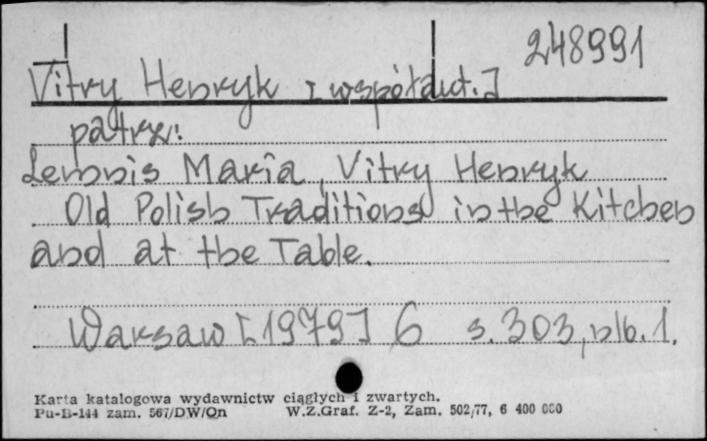 248991
Vitry Henryk [współaut.]
patrz:
Lemnis Maria, Vitry Henryk
Old Polish Traditions in the Kitchen
and at the Table.
Warsaw [1979] 6 s. 303, nlb. 1.
Karta katalogowa wydawnictw ciągłych i zwartych.
Pu-B-144 zam. 567/DW/Qn W.Z.Graf. Z-2, Zam. 502/77, 6 400 000